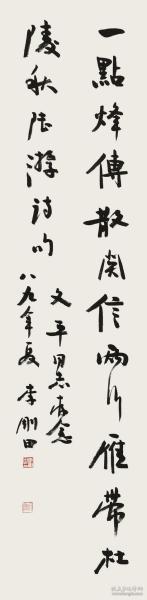 一點烽傳散关信兩行雁帶杜
陵秋陆游詩句
文平同志存念
八九年夏李刚田